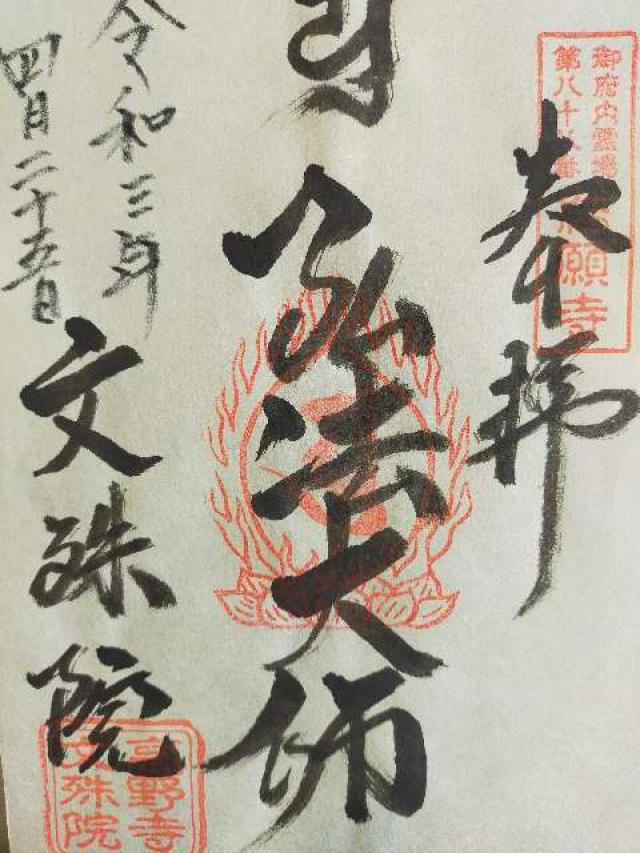 御府内霊場
第八十八番
結願寺
奉拝
弘法大師
令和三年
四月二十五日
文殊院
高野寺
文殊院